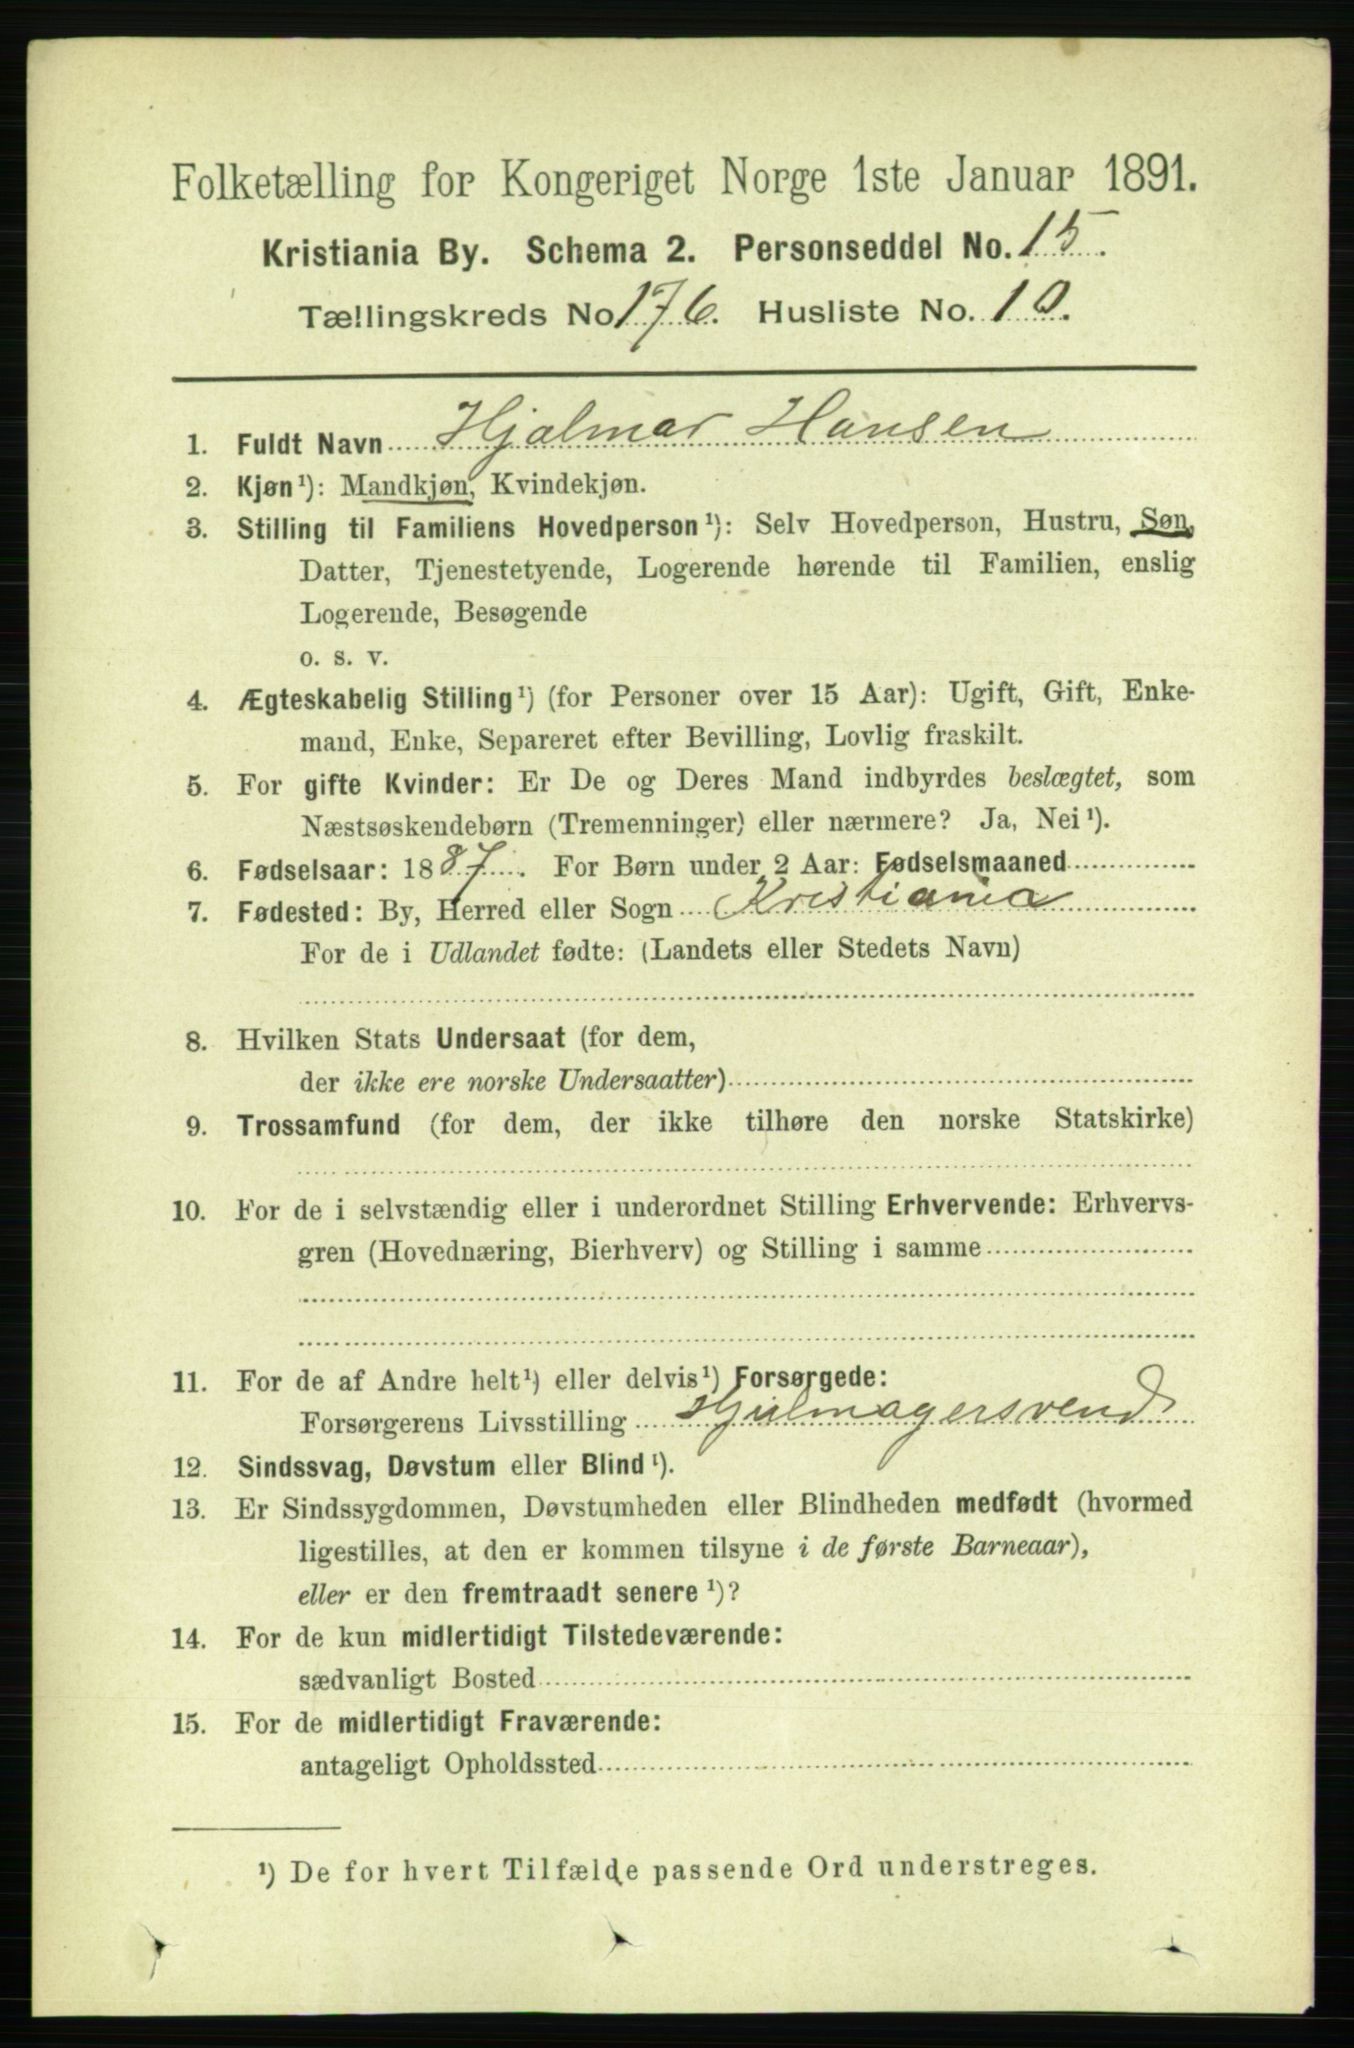 Folketælling for Kongeriget Norge 1ste Januar 1891.
Kristiania By. Schema 2. Personseddel No. 15.
Tællingskreds No 176. Husliste No. 10.
1. Fuldt Navn Hjalmar Hansen
2. Kjøn¹): Mandkjøn, Kvindekjøn.
3. Stilling til Familiens Hovedperson¹): Selv Hovedperson, Hustru, Søn,
Datter, Tjenestetyende, Logerende hørende til Familien, enslig
Logerende, Besøgende
o. s. v.
4. Ægteskabelig Stilling¹) (for Personer over 15 Aar): Ugift, Gift, Enke-
mand, Enke, Separeret efter Bevilling, Lovlig fraskilt.
5. For gifte Kvinder: Er De og Deres Mand indbyrdes beslægtet, som
Næstsøskendebørn (Tremenninger) eller nærmere? Ja, Nei¹).
6. Fødselsaar: 1887. For Børn under 2 Aar: Fødselsmaaned
7. Fødested: By, Herred eller Sogn Kristiania
For de i Udlandet fødte: (Landets eller Stedets Navn)
8. Hvilken Stats Undersaat (for dem,
der ikke ere norske Undersaatter)
9. Trossamfund (for dem, der ikke tilhøre den norske Statskirke)
10. For de i selvstændig eller i underordnet Stilling Erhvervende: Erhvervs-
gren (Hovednæring, Bierhverv) og Stilling i samme
11. For de af Andre helt¹) eller delvis¹) Forsørgede:
Forsørgerens Livsstilling Hjulmagersvend
12. Sindssvag, Døvstum eller Blind¹).
13. Er Sindssygdommen, Døvstumheden eller Blindheden medfødt (hvormed
ligestilles, at den er kommen tilsyne i de første Barneaar),
eller er den fremtraadt senere¹)?
14. For de kun midlertidigt Tilstedeværende:
sædvanligt Bosted
15. For de midlertidigt Fraværende:
antageligt Opholdssted
¹) De for hvert Tilfælde passende Ord understreges.